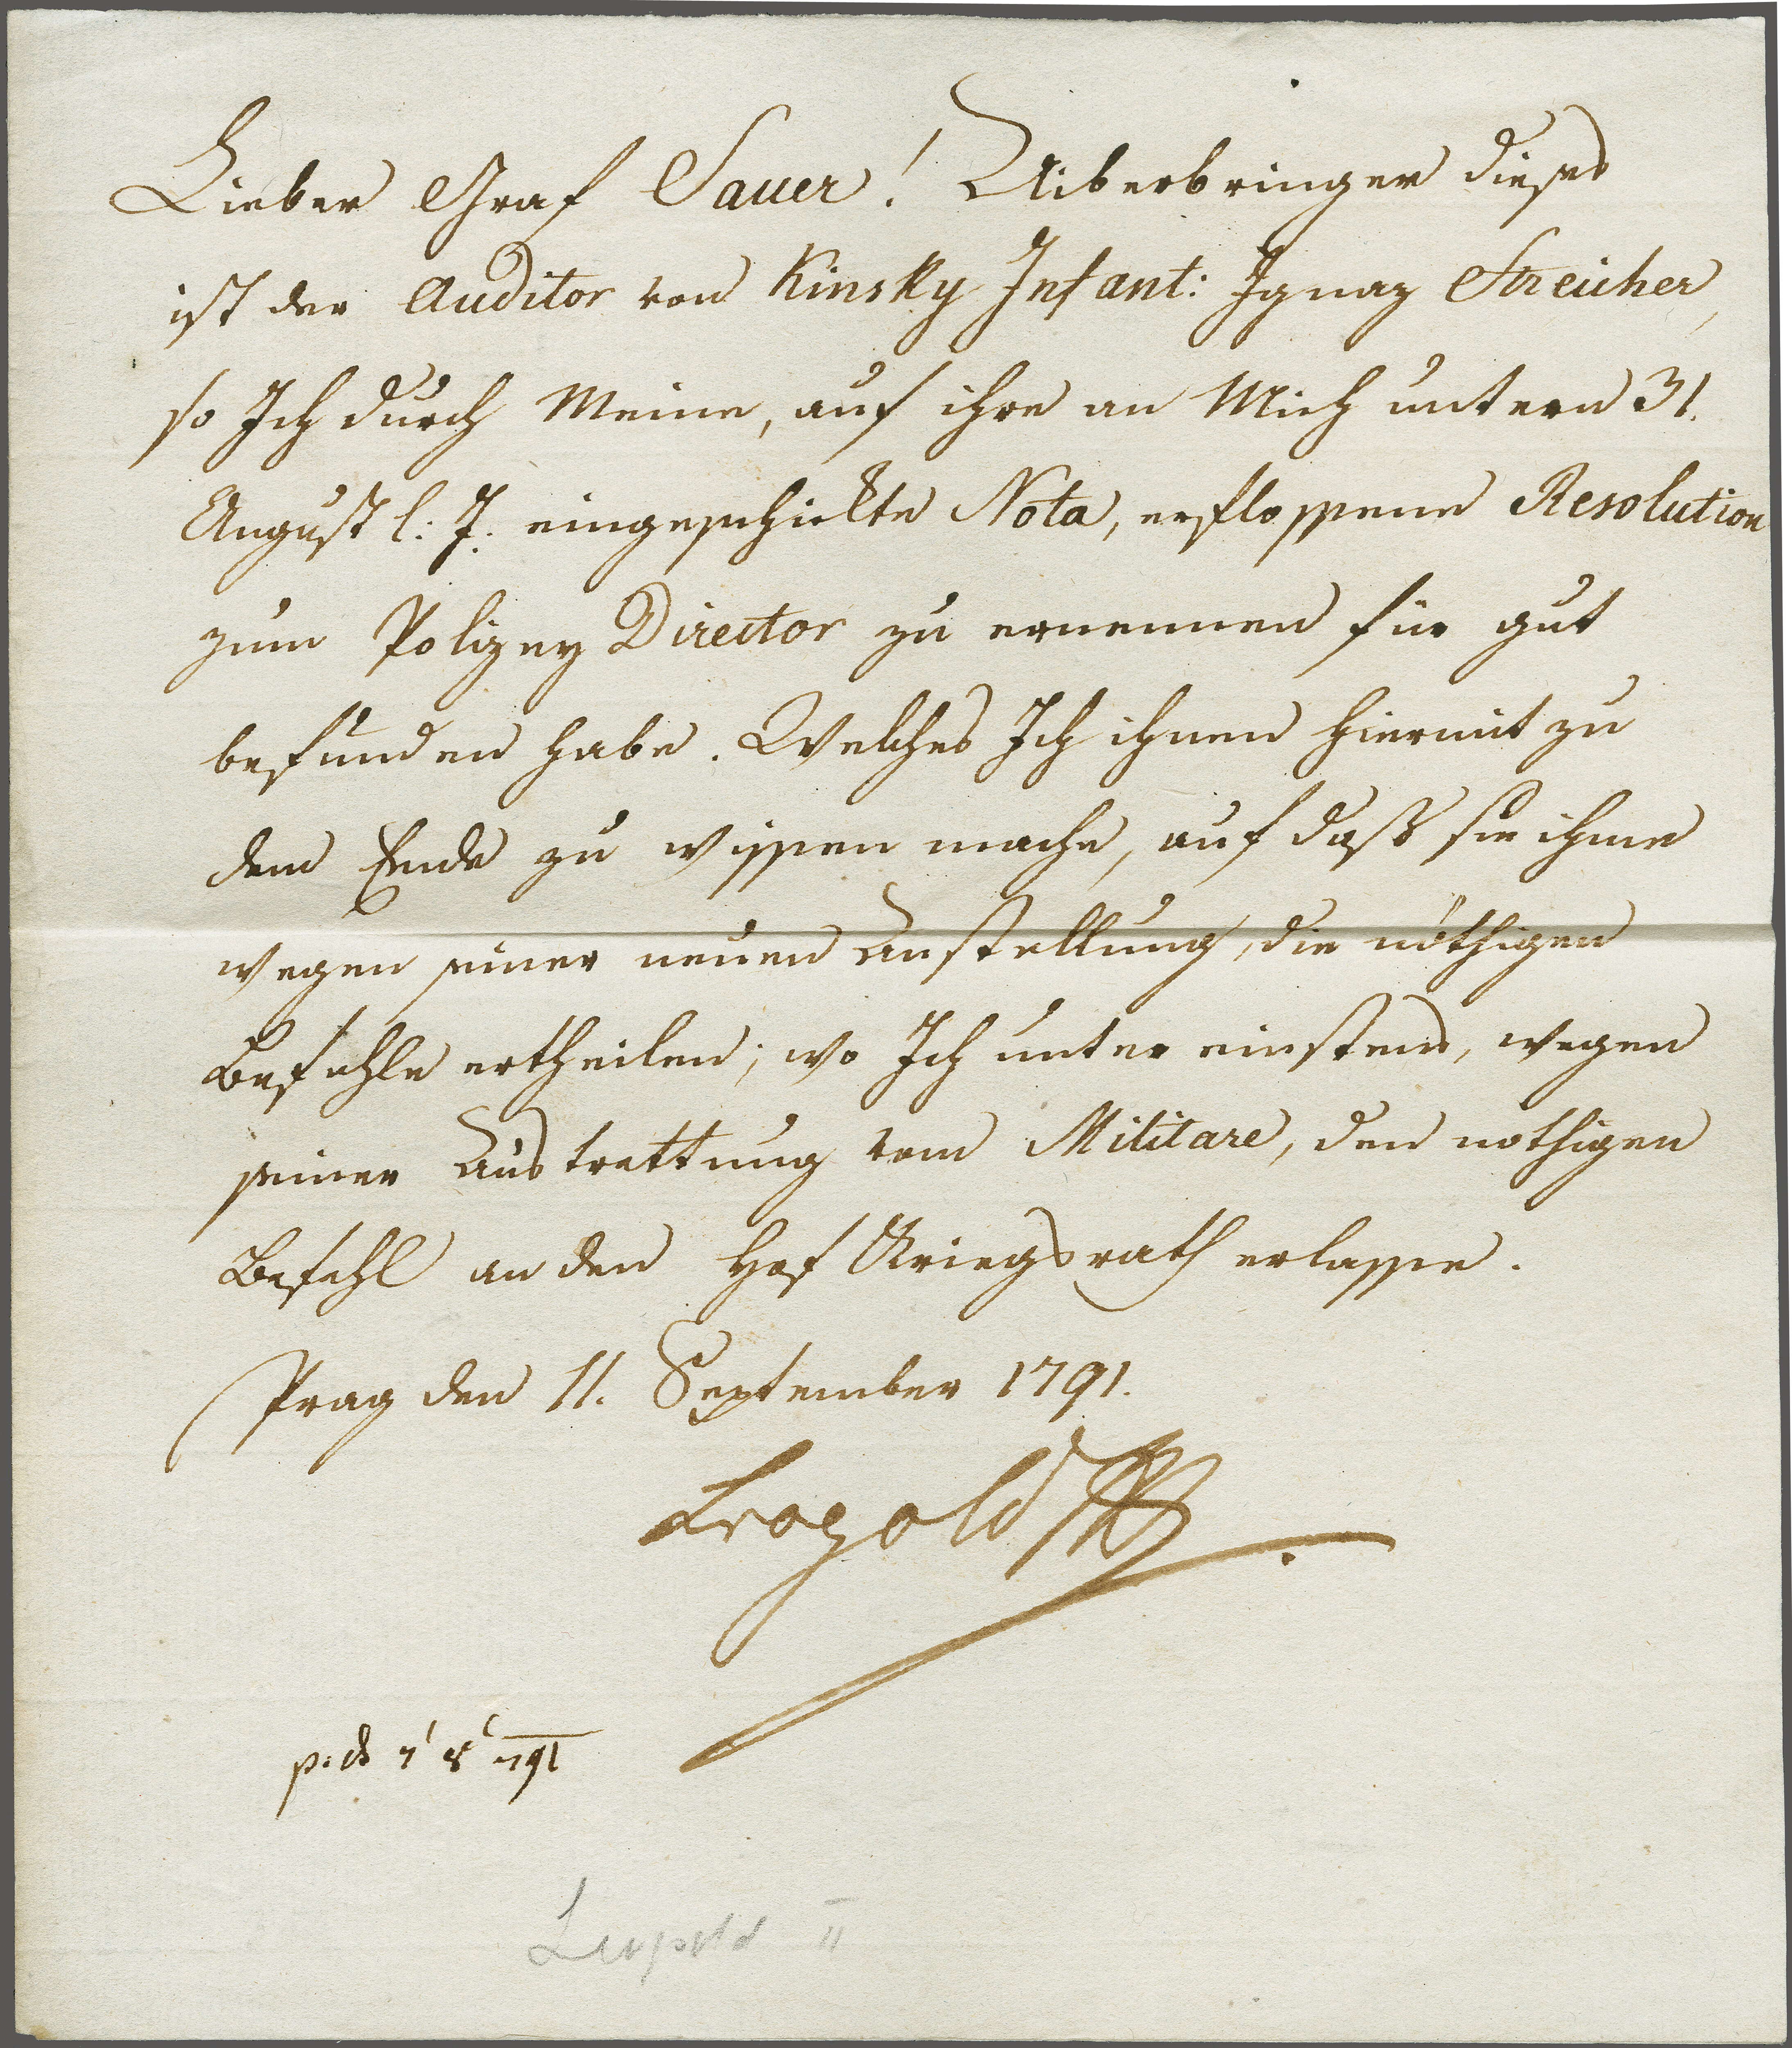 Lieber Graf Sauer! Uiberbringer dieses
ist der Auditor von Kinsky Infant: Ignaz Streicher,
so Ich durch Meine, auf ihre an Mich untern 31.
August l: J: eingeschickte Nota, erflossene Resolution
zum Polizey Director zu ernennen für gut
befunden habe. Welches Ich ihnen hiermit zu
dem Ende zu wissen mache, auf daß sie ihme
wegen seiner neuen Anstellung, die nöthigen
Befehle ertheilen; wo Ich unter einstens, wegen
seiner Austrettung vom Militare, den nothigen
Befehl an den Hof Kriegsrath erlasse.
Prag den 11. September 1791.
Leopold
791
Leopold II